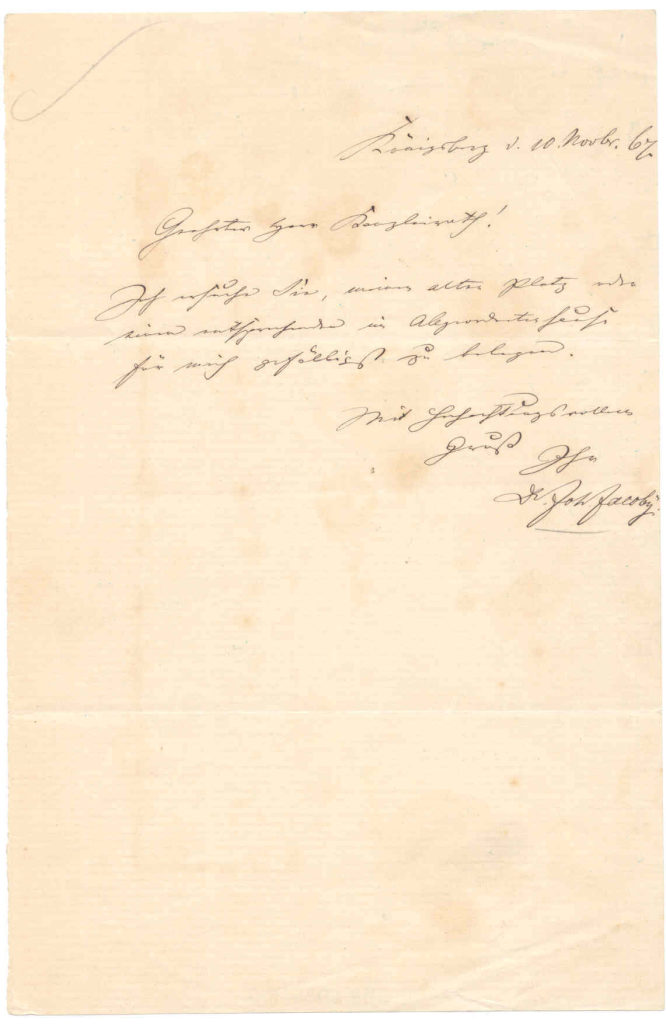 Königsberg d. 10. Novbr. 67.
Geehrter Herr Kanzleirath!
Ich ersuche Sie, meinen alten Platz oder
einen entsprechenden im Abgeordnetenhause
für mich gefälligst zu belegen.
Mit hochachtungsvollem
Gruß
Ihr
Dr. Joh Jacoby.